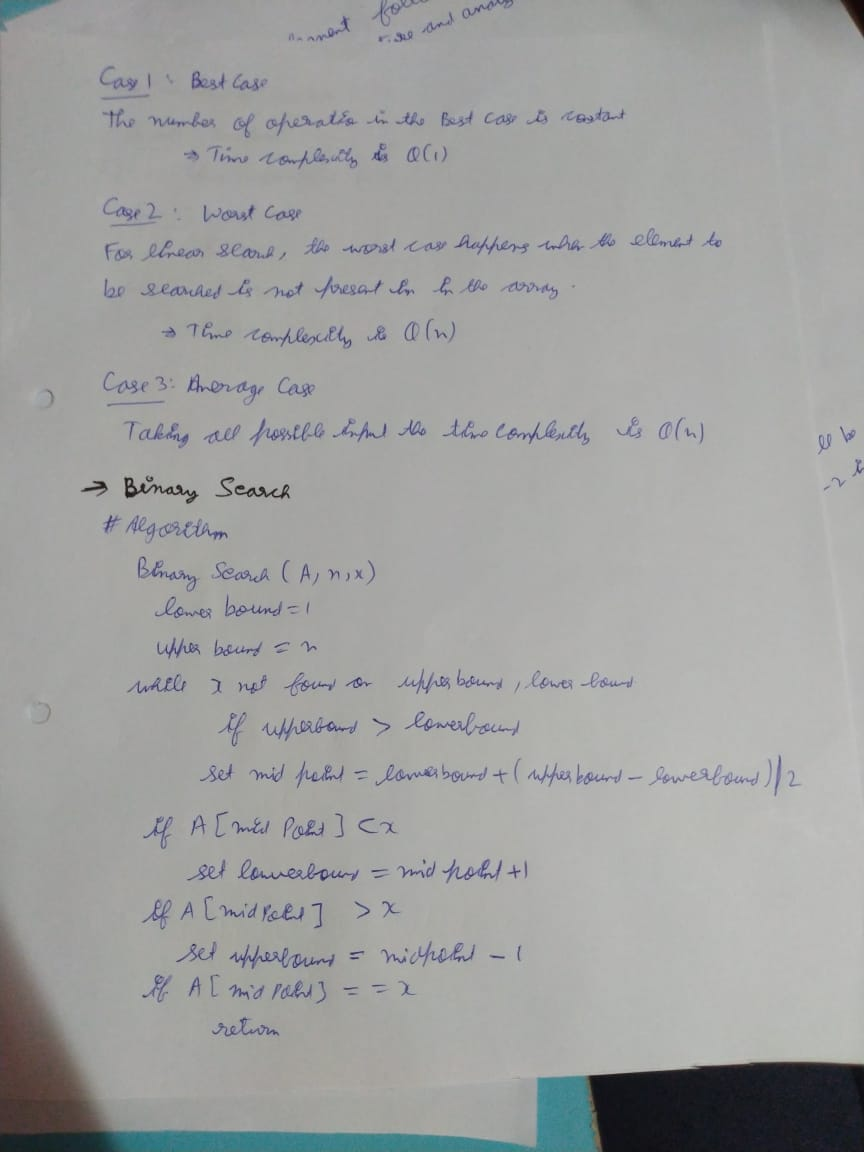 and
Case 1 : Best Case
The number of operatio in the Best Case is constant
→ Time complexity is O(1)
Case 2 : Worst Case
For linear search, the worst case happens when the element to
be searched is not present in in the array.
→ Time complexity is O(n)
Case 3: Average Case
Taking all possible input the time complexity is O(n)
→ Binary Search
# Algorithm
Binary Search (A, n, x)
lower bound = 1
upper bound = n
while x not found or upper bound, lower bound
if upperbound > lowerbound
set mid point = lowerbound + (upperbound - lowerbound)/2
if A [mid Point] < x
set lowerbound = mid point +1
if A [mid Point] > x
set upperbound = midpoint - 1
if A [mid Point] = = x
return